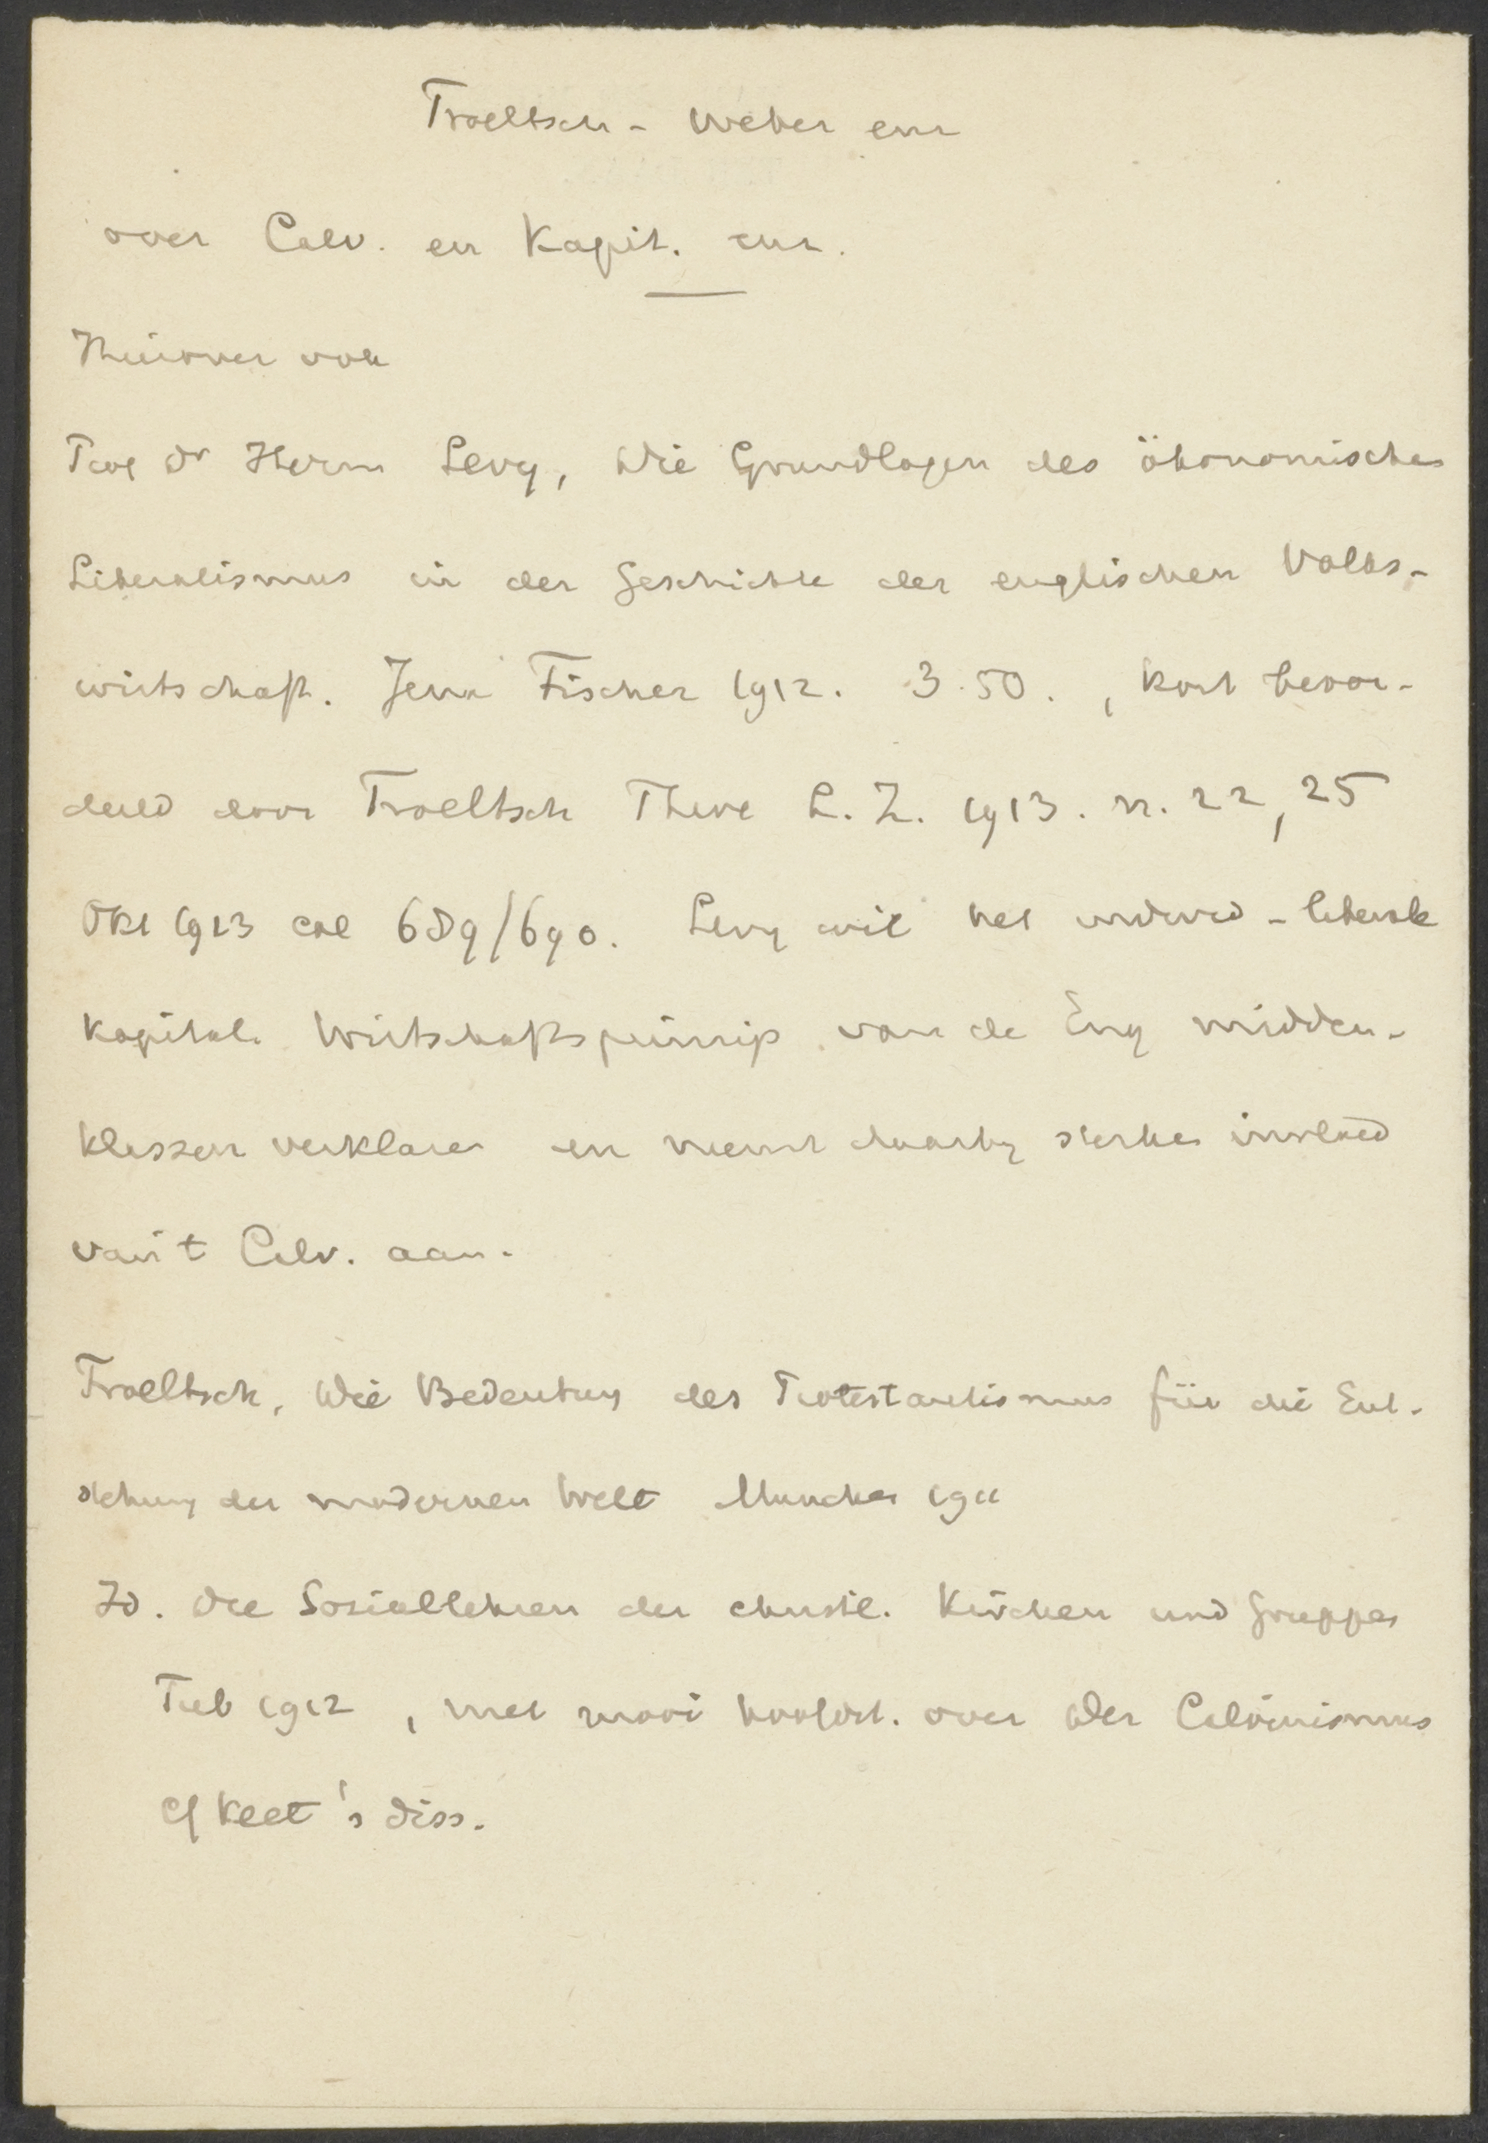 Troeltsch - Weber enz
over Calv. en Kapit. enz.
Hierover ook
Prof Dr Herm Levy, Die Grundlagen des ökonomischen
Liberalismus in der Geschichte der englischen Volks-
wirtschaft. Jena Fischer 1912. 3.50. , kort beoor-
deeld door Troeltsch Theol L. Z. 1913. n. 22, 25
Okt 1913 col 689/690. Levy wil het individ - liberale
kapital. Wirtschaftsprinzip van de Eng midden-
klassen verklaren en neemt daarbij sterken invloed
van 't Calv. aan.
Troeltsch, Die Bedeutung des Protestantismus für die Ent-
stehung der modernen Welt Munchen 1911
Id. Die Soziallehren der christl. Kirchen und Gruppen
Tub 1912 , met mooi hoofdst. over Der Calvinismus
Cf Keet's diss.